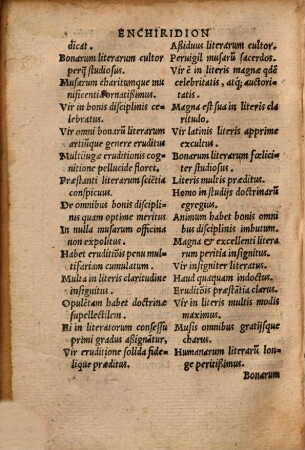 ENCHIRIDION
dicat.
Bonarum literarum cultor
perq̃ studiosus.
Musarum charitumque mu
nificentia ornatißimus.
Vir in bonis disciplinis ce-
lebratus.
Vir omni bonarũ literarum
artiũque genere eruditus
Multiiugæ eruditionis cog
nitione pellucide floret,
Præstanti literarum sciẽtia
conspicuus.
De omnibus bonis discipli-
nis quam optime meritus
In nulla musarum officina
non expolitus.
Habet eruditiõis penu mul
tifariam cumulatum.
Multa in literis claritudine
insignitus.
Opulẽtam habet doctrinæ
supellectilem.
Ei in literatorum consessu
primi gradus aßignãtur,
Vir eruditione solida fide-
lique præditus.
Aßiduus literarum cultor.
Peruigil musarũ sacerdos.
Vir è in literis magnæ qdã
celebritatis, atq; auctori-
tatis.
Magna est sua in literis cla
ritudo.
Vir latinis literis apprime
excultus.
Bonarum literarum fœlici-
ter studiosus.
Literis multis præditus.
Homo in studijs doctrinarũ
egregius.
Animum habet bonis omni
bus disciplinis imbutum.
Magna & excellenti litera
rum peritia insignitus.
Vir insigniter literatus.
Haud quaquam indoctus.
Eruditiõis præstãtia clarus.
Vir in literis multis modis
maximus.
Musis omnibus gratijsque
charus.
Humanarum literarũ lon-
ge peritißimus.
Bonarum